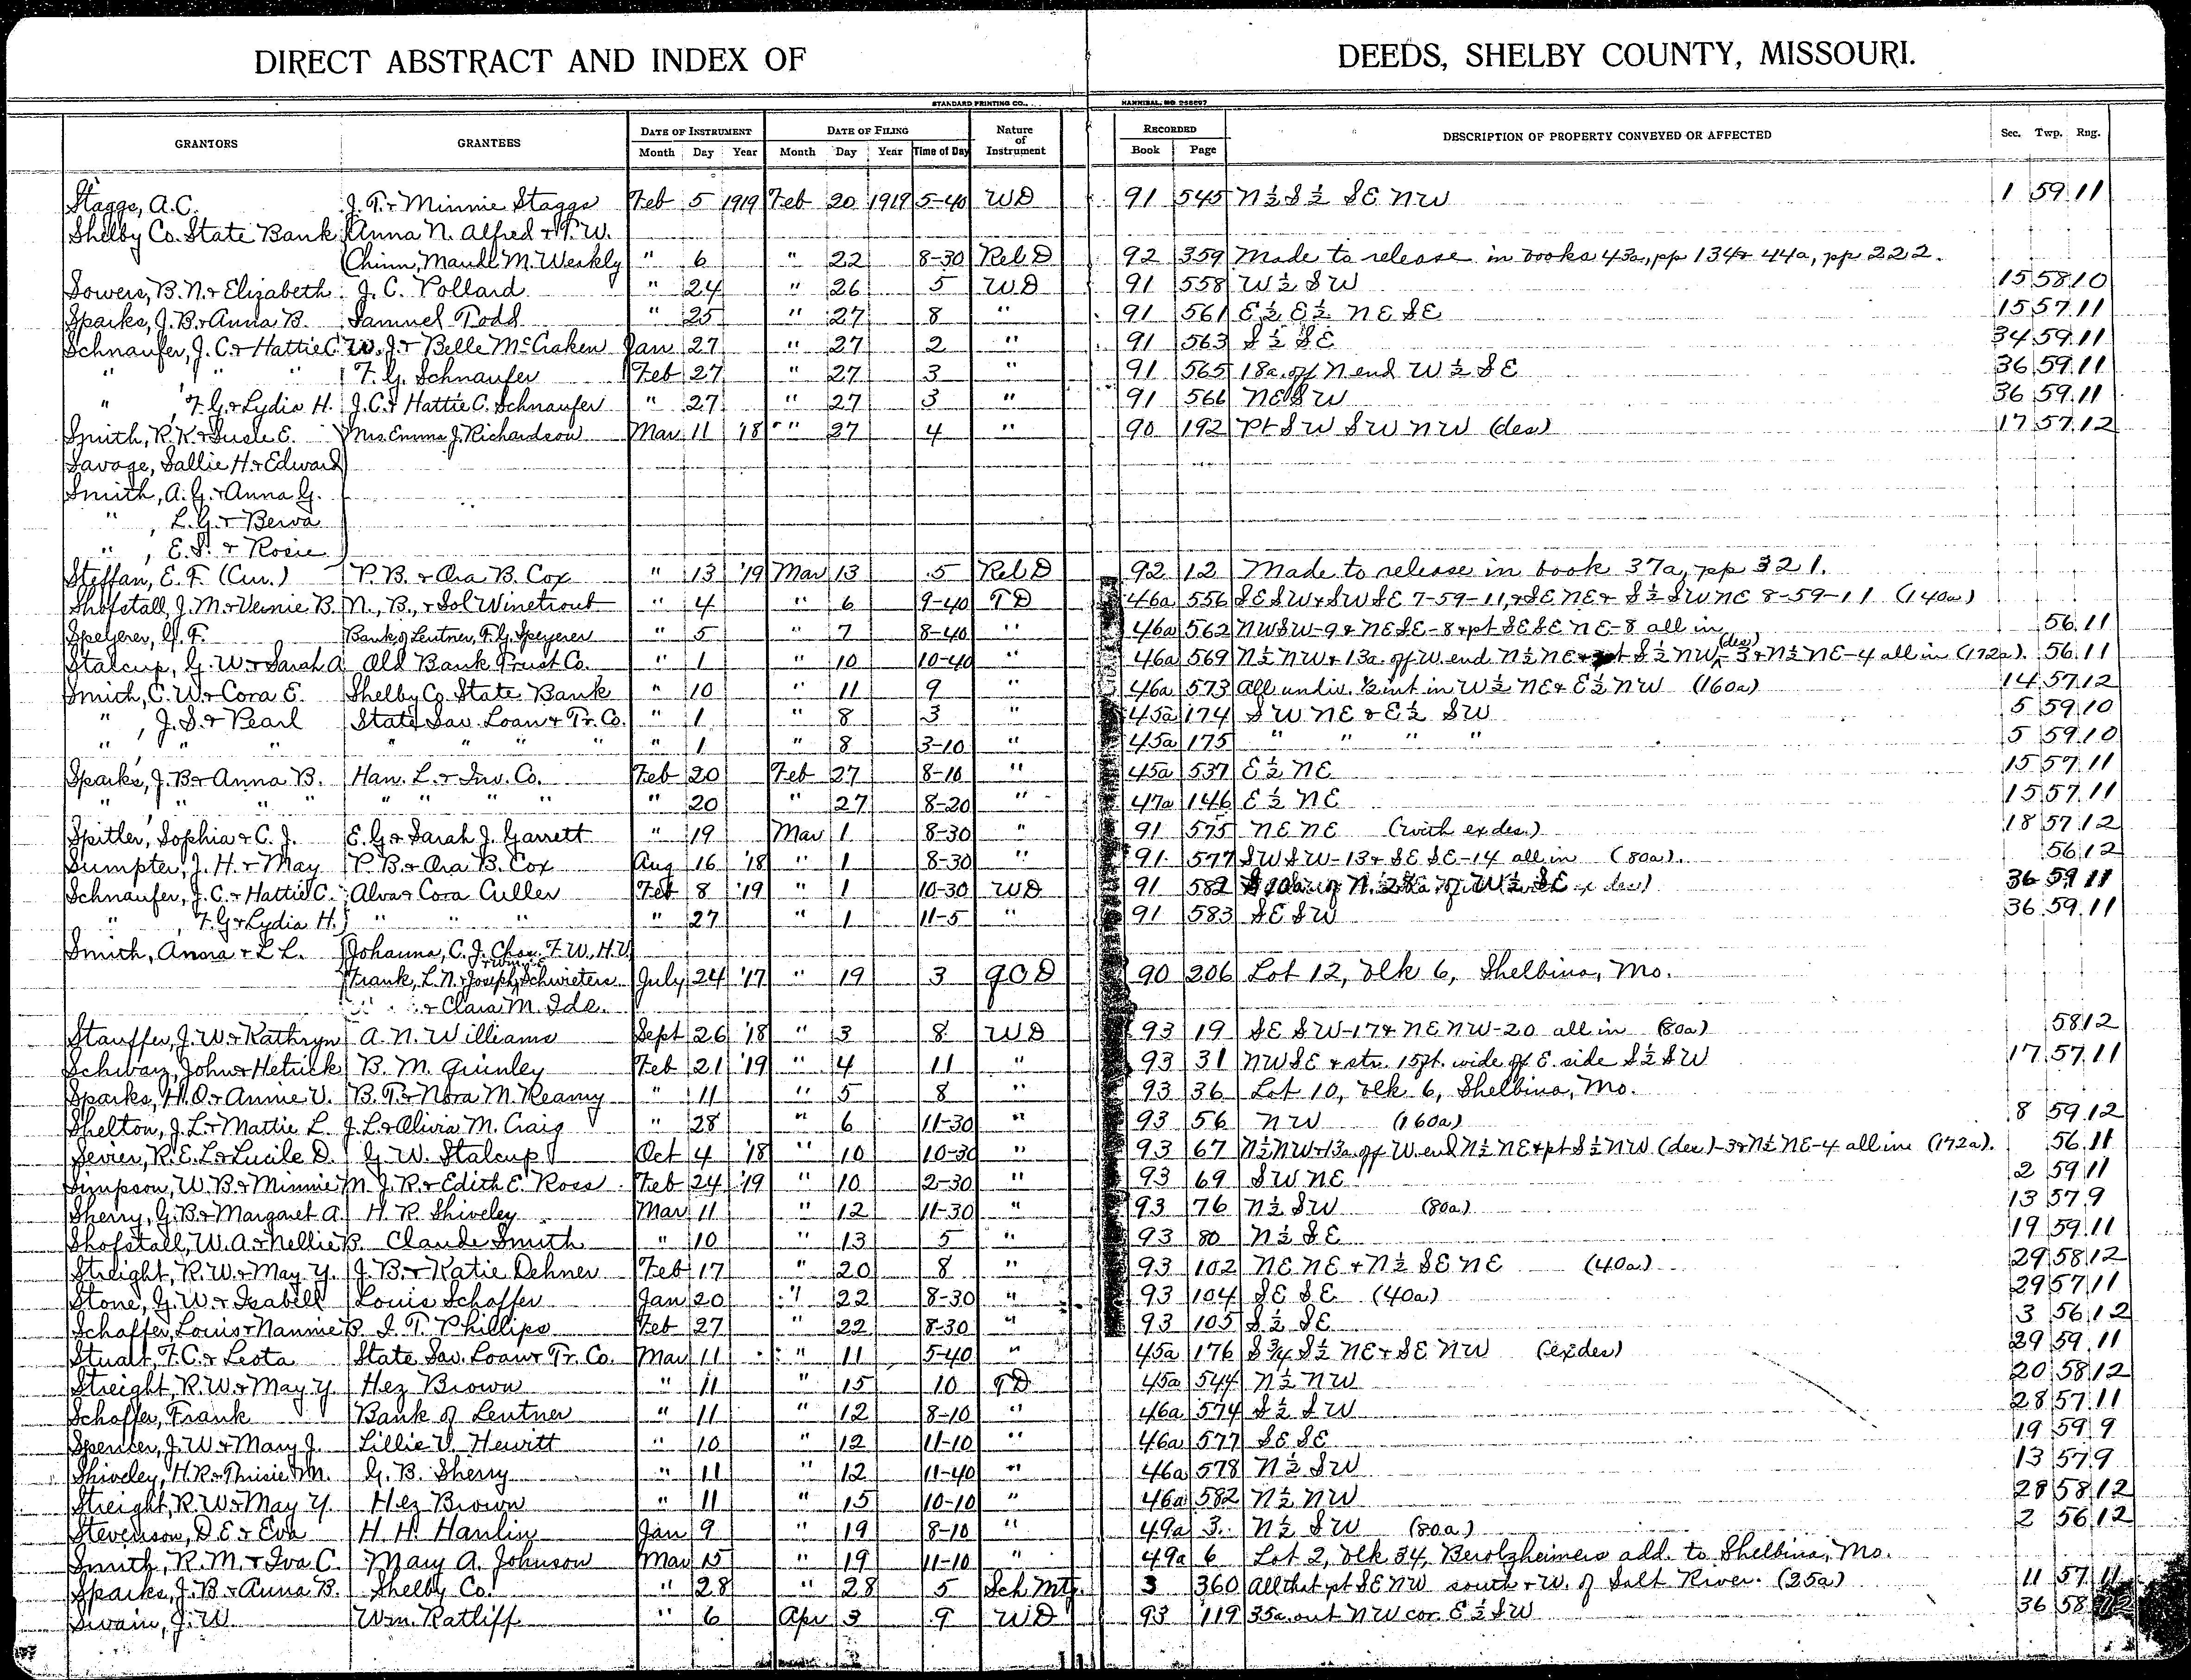 DIRECT ABSTRACT AND INDEX OF DEEDS, SHELBY COUNTY, MISSOURI.
STANDARD PRINTING CO., HANNIBAL, MO
GRANTORS GRANTEES DATE OF INSTRUMENT DATE OF FILING Nature of Instrument RECORDED DESCRIPTION OF PROPERTY CONVEYED OR AFFECTED Sec. Twp. Rng.
Month Day Year Month Day Year Time of Day Book Page
Staggs, A.C. J. T. & Minnie Staggs Feb 5 1919 Feb 20 1919 5-40 WD 91 545 N½ S½ SE NW 1 59 11
Shelby Co. State Bank Anna N. Alfred & T. W.
Chinn, Maudl M. Weakly " 6 " 22 8-30 Rel D 92 359 Made to release in books 43a, pp 134 & 44a, pp 222.
Sowers, B. N. & Elizabeth J. C. Pollard " 24 " 26 5 WD 91 558 W½ SW 15 58 10
Sparks, J. B. & Anna B. Samuel Todd " 25 " 27 8 " 91 561 E½ E½ NE SE 15 57 11
Schnaufer, J. C. & Hattie C. W. J. & Belle McCraken Jan 27 " 27 2 " 91 563 S½ SE 34 59 11
" " " F. G. Schnaufer Feb 27 " 27 3 " 91 565 18a. off N end W½ SE 36 59 11
" , F. G. & Lydia H. J. C. & Hattie C. Schnaufer " 27 " 27 3 " 91 566 NE SW 36 59 11
Smith, R. K. & Susie E. Mrs Emma J. Richardson Mar 11 '18 " 27 4 " 90 192 Pt SW SW NW (des) 17 57 12
Savage, Sallie H. & Edward
Smith, A. G. & Anna G.
" , L. G. & Berva
" , E. S. & Rosie
Steffan, E. F. (Cur.) P. B. & Ora B. Cox " 13 '19 Mar 13 5 Rel D 92 12 Made to release in book 37a, pp 321.
Shofstall, J. M. & Vernie B. N., B., & Sol Winetrout " 4 " 6 9-40 TD 46a 556 SE SW & SW SE 7-59-11, & SE NE & S½ SW NE 8-59-11 (140a)
Speyerer, G. F. Bank of Lentner, F. G. Speyerer " 5 " 7 8-40 " 46a 562 NW SW-9 & NE SE-8 & pt SE SE NE-8 all in 56 11
Stalcup, G. W. & Sarah A. Old Bank Trust Co. " 1 " 10 10-40 " 46a 569 N½ NW & 13a. off W. end N½ NE & pt S½ NW (des)-3 & N½ NE-4 all in (172a). 56 11
Smith, C. W. & Cora E. Shelby Co. State Bank " 10 " 11 9 " 46a 573 All undiv. ½ int in W½ NE & E½ NW (160a) 14 57 12
" , J. S. & Pearl State Sav. Loan & Tr. Co. " 1 " 8 3 " 45a 174 SW NE & E½ SW 5 59 10
" " " " " " " " 1 " 8 3-10 " 45a 175 " " " " 5 59 10
Sparks, J. B. & Anna B. Han. L. & Inv. Co. Feb 20 Feb 27 8-10 " 45a 537 E½ NE 15 57 11
" " " " " " " " " 20 " 27 8-20 " 47a 146 E½ NE 15 57 11
Spitler, Sophia & C. J. E. G. & Sarah J. Garrett " 19 Mar 1 8-30 " 91 575 NE NE (with ex des.) 18 57 12
Sumpter, J. H. & May P. B. & Ora B. Cox Aug 16 '18 " 1 8-30 " 91 577 SW SW-13 & SE SE-14 all in (80a). 56 12
Schnaufer, J. C. & Hattie C. Alva & Cora Culler Feb 8 '19 " 1 10-30 WD 91 582 W½ SE ex des) 36 59 11
" , F. G. & Lydia H. " " " " 27 " 1 11-5 " 91 583 SE SW 36 59 11
Smith, Anna & L. L. Johanna, C. J. Chas. F. W., H. V.
Frank, L. N. & Joseph Schwieters July 24 '17 " 19 3 QCD 90 206 Lot 12, Blk 6, Shelbina, Mo.
& Clara M. Ide.
Stauffer, J. W. & Kathryn A. N. Williams Sept 26 '18 " 3 8 WD 93 19 SE SW-17 & NE NW-20 all in (80a) 58 12
Schwarz, John & Hetrick B. M. Quinley Feb 21 '19 " 4 11 " 93 31 NW SE & str. 15ft. wide off E. side S½ SW 17 57 11
Sparks, H. O. & Annie V. B. T. & Nora M. Reamy " 11 " 5 8 " 93 36 Lot 10, Blk 6, Shelbina, Mo.
Shelton, J. L. & Mattie L. J. L. & Olivia M. Craig " 28 " 6 11-30 " 93 56 NW (160a) 8 59 12
Sevier, R. E. L. & Lucile D. G. W. Stalcup Oct 4 '18 " 10 10-30 " 93 67 N½ NW & 13a. off W. end N½ NE & pt S½ NW (des)-3 & N½ NE-4 all in (172a). 56 11
Simpson, W. B. & Minnie M. J. R. & Edith E. Ross Feb 24 '19 " 10 2-30 " 93 69 SW NE 2 59 11
Sherry, G. B. & Margaret A. H. R. Shiveley Mar 11 " 12 11-30 " 93 76 N½ SW (80a) 13 57 9
Shofstall, W. A. & Nellie B. Claude Smith " 10 " 13 5 " 93 80 N½ SE 19 59 11
Streight, R. W. & May Y. J. B. & Katie Dehner Feb 17 " 20 8 " 93 102 NE NE & N½ SE NE (40a) 29 58 12
Stone, G. W. & Isabell Louis Schaffer Jan 20 " 22 8-30 " 93 104 SE SE (40a) 29 57 11
Schaffer, Louis & Nannie B. I. T. Phillips Feb 27 " 22 8-30 " 93 105 S½ SE 3 56 12
Stuart, F. C. & Leota State Sav. Loan & Tr. Co. Mar 11 " 11 5-40 " 45a 176 S¾ S½ NE & SE NW (ex des) 29 59 11
Streight, R. W. & May Y. Hez Brown " 11 " 15 10 TD 45a 544 N½ NW 20 58 12
Schaffer, Frank Bank of Lentner " 11 " 12 8-10 " 46a 574 S½ SW 28 57 11
Spencer, J. W. & Mary J. Lillie V. Hewitt " 10 " 12 11-10 " 46a 577 SE SE 19 59 9
Shiveley, H. R. & Thisie M. G. B. Sherry " 11 " 12 11-40 " 46a 578 N½ SW 13 57 9
Streight, R. W. & May Y. Hez Brown " 11 " 15 10-10 " 46a 582 N½ NW 28 58 12
Stevenson, D. E. & Eva H. H. Hanlin Jan 9 " 19 8-10 " 49a 3 N½ SW (80a) 2 56 12
Smith, R. M. & Iva C. Mary A. Johnson Mar 15 " 19 11-10 " 49a 6 Lot 2, Blk 34, Berolzheimers add. to Shelbina, Mo.
Sparks, J. B. & Anna B. Shelby Co. " 28 " 28 5 Sch Mtg. 3 360 All that pt SE NW south & W. of Salt River. (25a) 11 57 11
Swain, J. W. Wm. Ratliff " 6 Apr 3 9 WD 93 119 35a. out NW cor. E½ SW 36 58 12